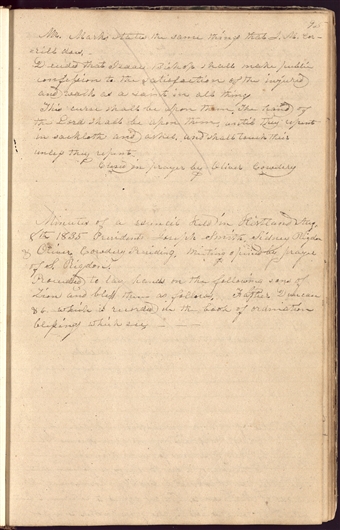 95
Mr. Marks states the same things that S. M. Co-
rrill has. —
Decided that Isaac Bishop shall make public
confession to the satisfaction of the injured
and walk as a saint in all things
This curse shall be upon them, The hand of
the Lord shall be upon them, until they repent
in sackloth and ashes and shall touch their
unless they repent.
Closed in prayer by Oliver Cowdery

Minutes of a council held in Kirtland Aug.
8th 1835 Presidents Joseph Smith, Sidney Rigdon
& Oliver Cowdery Presiding. Meeting opened by prayer
of S. Rigdon.
Proceeded to lay hands on the following sons of
Zion and bless them as follows, Father Duncan
&c which is recorded in the book of ordination
blessing which see — — —